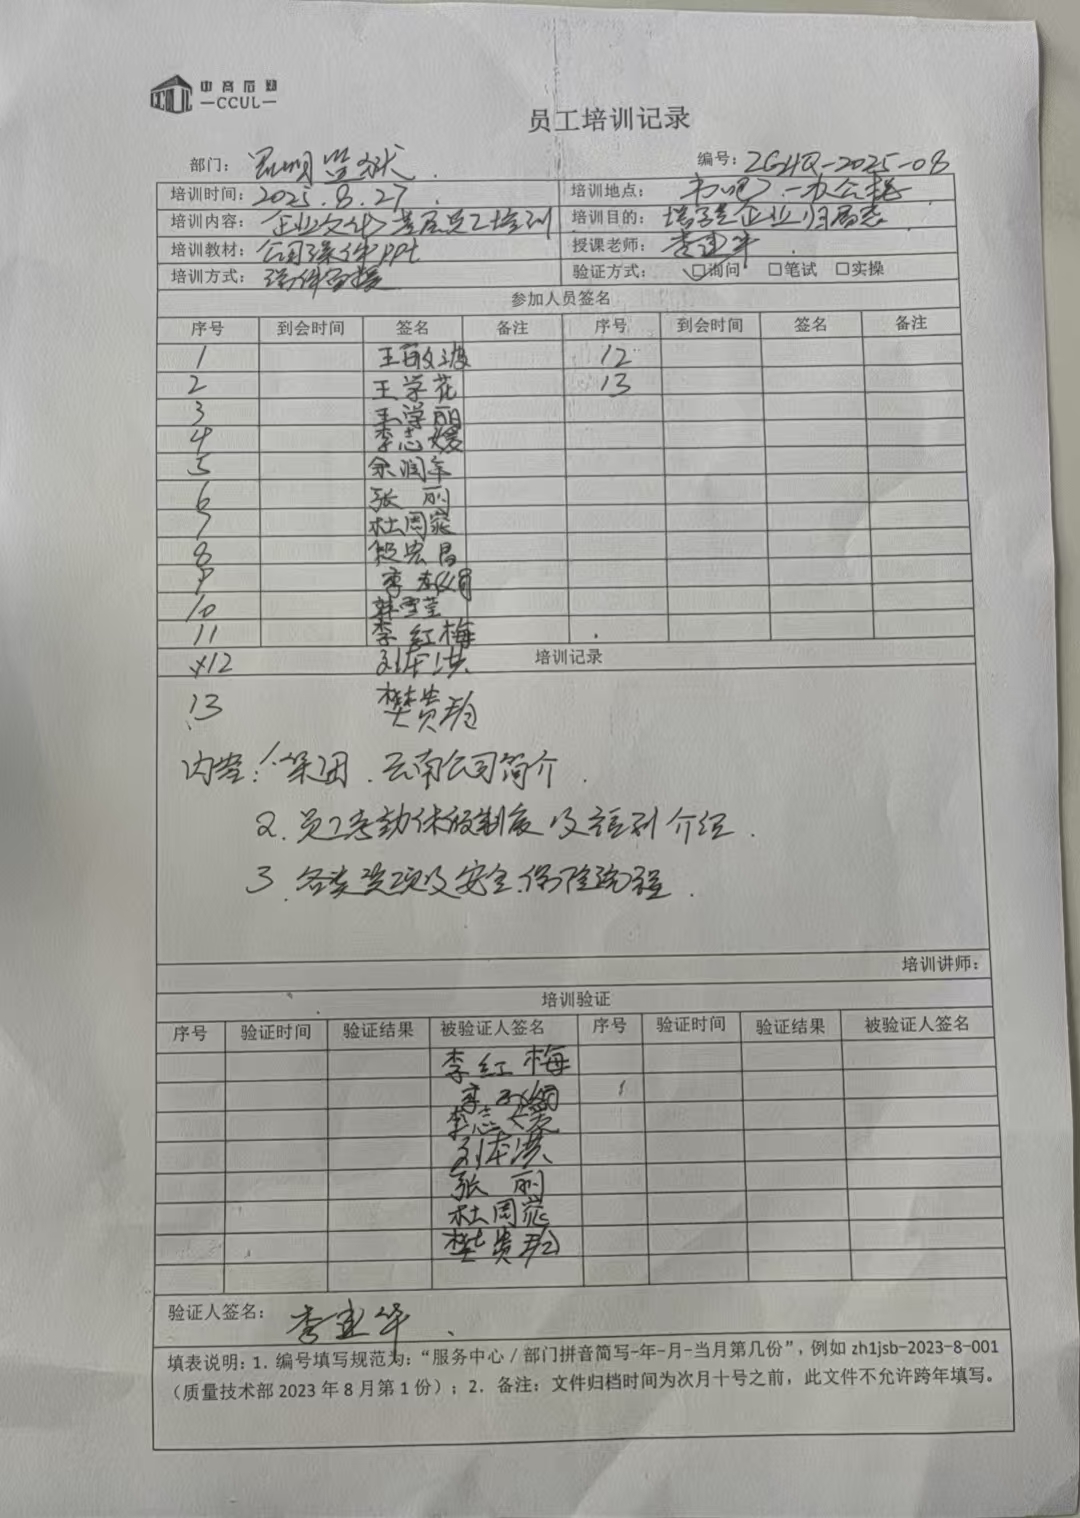 中商后勤
—CCUL—
员工培训记录
部门:
编号: ZGHQ-2025-08
培训时间: 2025.8.27.
培训地点:
培训内容: 企业文化、基层员工培训
培训目的: 增强企业归属感
培训教材: 公司课件PPt
授课老师: 李建华
培训方式:
验证方式: ☑询问 □笔试 □实操
参加人员签名
序号 到会时间 签名 备注 序号 到会时间 签名 备注
1 王敏波 12
2 王学花 13
3 王学丽
4 李志媛
5 余润年
6 张 丽
7 杜周窕
8 段宏昌
9 李
10 韩雪莹
11 李红梅
培训记录
12 刘本洪
13 樊贵玲
内容: 1、集团、云南公司简介.
2. 员工考勤休假制度及福利介绍.
3. 各类奖项及安全、保险流程.
培训讲师:
培训验证
序号 验证时间 验证结果 被验证人签名 序号 验证时间 验证结果 被验证人签名
李红梅
李
李志媛
刘本洪
张 丽
杜周窕
樊贵玲
验证人签名: 李建华
填表说明: 1. 编号填写规范为: “服务中心/部门拼音简写-年-月-当月第几份”, 例如 zh1jsb-2023-8-001
(质量技术部 2023 年 8 月第 1 份); 2. 备注: 文件归档时间为次月十号之前, 此文件不允许跨年填写。